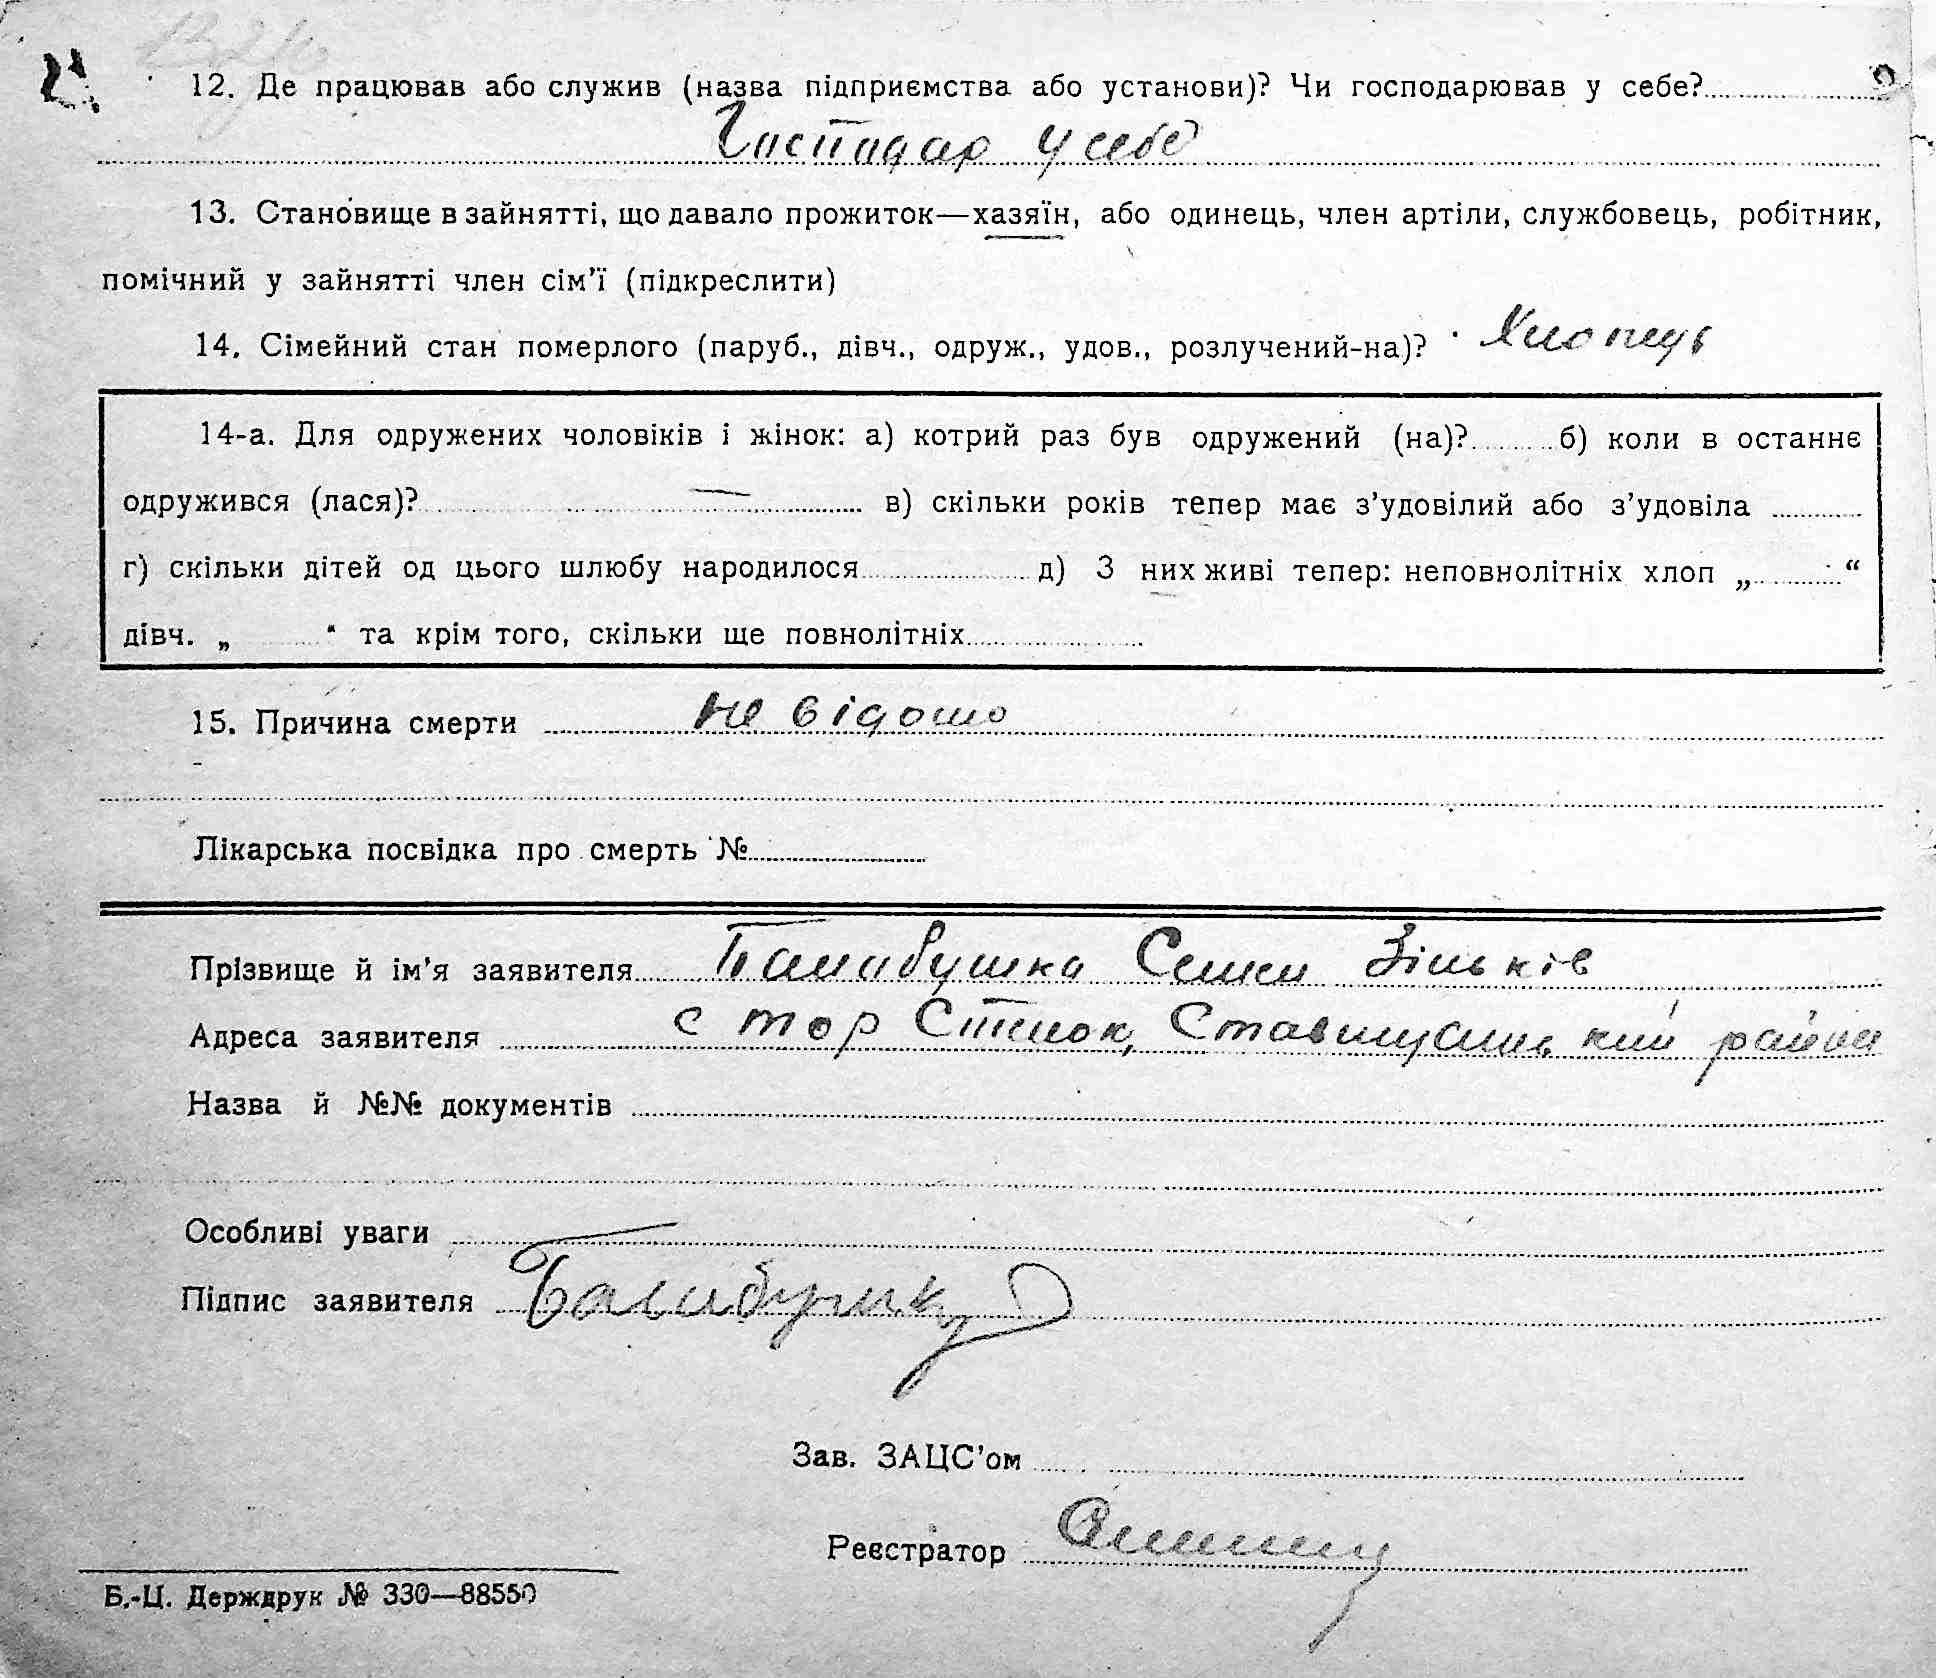 12. Де працював або служив (назва підприємства або установи)? Чи господарював у себе?
Господар у себе
13. Становище в зайнятті, що давало прожиток—хазяїн, або одинець, член артіли, службовець, робітник,
помічний у зайнятті член сім'ї (підкреслити)
14. Сімейний стан померлого (паруб., дівч., одруж., удов., розлучений-на)? Хлопець
14-а. Для одружених чоловіків і жінок: а) котрий раз був одружений (на)? б) коли в останнє
одружився (лася)? — в) скільки років тепер має з'удовілий або з'удовіла
г) скільки дітей од цього шлюбу народилося д) З них живі тепер: неповнолітніх хлоп „ “
дівч. „ “ та крім того, скільки ще повнолітніх
15. Причина смерти не відомо
Лікарська посвідка про смерть №
Прізвище й ім'я заявителя Балабушка Зіньків
Адреса заявителя с тор Ставищанський район
Назва й №№ документів
Особливі уваги
Підпис заявителя
Зав. ЗАЦС'ом
Реєстратор
Б.-Ц. Держдрук № 330—88550